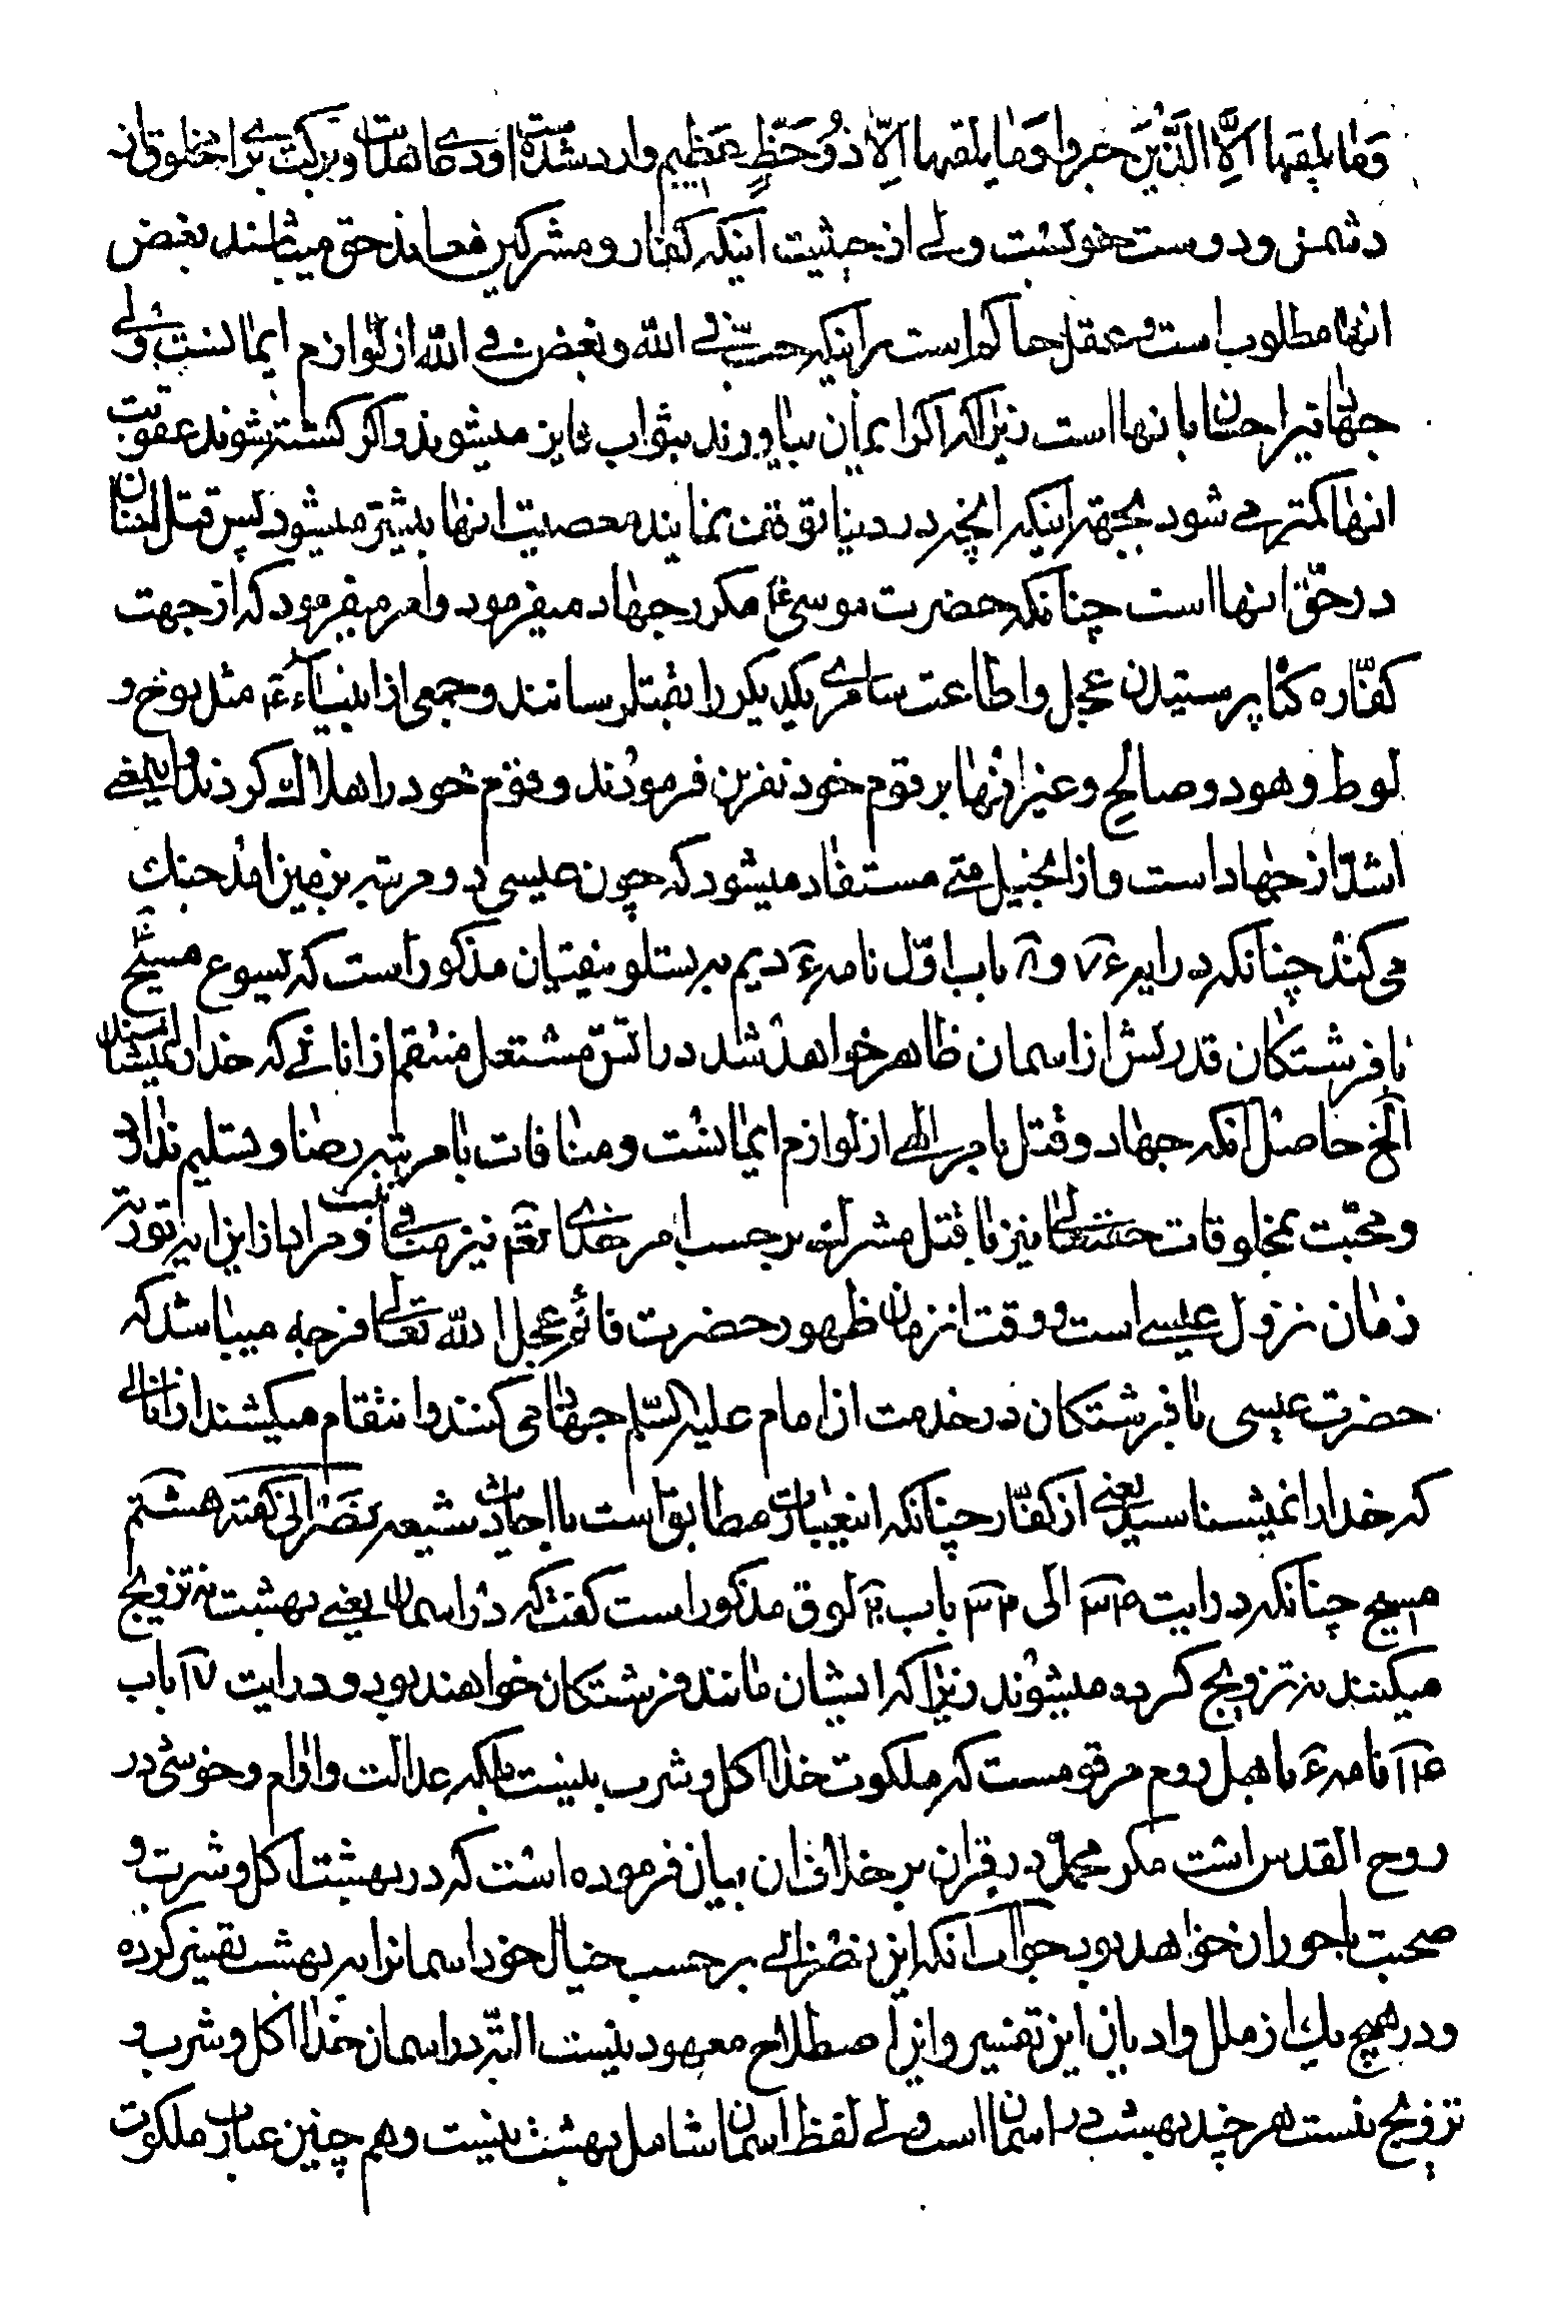 وَمٰا یلقیها اِلَّا الَّذینَ صَبروا وَمٰا یلقیها اِلّاٰ ذُو حَظٍّ عَظیمٍ وارد شده است او دعا هدایت و برکت برای مخلوق از
دشمن و دوست خوبست ولی از حیثیت اینکه کفار و مشرکین معاند حق میباشند بغض
انها مطلوب است و عقل حاکم است براینکه حبّ فی الله و بغض فی الله از لوازم ایمانست ولی
جهاد نیز احسان بانها است زیرا که اکر ایمان بیاورند بثواب فایز میشوند و اکر کشته شوند عقوبت
انها کمتر می شود بجهة اینکه انچه در دنیا توقف نمایند معصیت انها بیشتر میشود پس قتل احسان
در حقّ انها است چنانکه حضرت موسیٰ ع مکرر جهاد میفرمود و امر میفرمود که از جهت
کفّاره کناه پرستیدن عجل و اطاعت سامری یکدیکر را بقتل رسانند و جمعی از انبیآء ع مثل نوح و
لوط و هود و صالح و غیر انها بر قوم خود نفرین فرمودند و قوم خود را هلاك کردند و این معنی
اشدّ از جهاد است و از انجیل متی مستفاد میشود که چون عیسی دو مرتبه بزمین امد جنك
می کند چنانکه در ایه ۶ و ۷ و ۸ باب اوّل نامه ۲ دیم بر تسلونیقیان مذکور است که یسوع مسیح
با فرشتکان قدرتش از اسمان ظاهر خواهد شد در اتش مشتعل منتقم از انانی که خدا را نمیشناسند
الخ حاصل انکه جهاد و قتل بامر الهی از لوازم ایمانست و منافات با مرتبه رضا و تسلیم ندارد
و محبّت بمخلوقات حقتعالی نیز با قتل مشرکین بر حسب امر خدای تعالی نیز منافی نیست و مراد از این ایه توریة
زمان نزول عیسی است و وقت انزمان ظهور حضرت قائم عجل الله تعالی فرجه میباشد که
حضرت عیسی با فرشتکان در خدمت ان امام علیه السّلم جهاد می کنند و انتقام میکشند از انانی
که خدا را نمیشناسند یعنی از کفّار چنانکه اینعبارت مطابق است با احادیث شیعه نصرانی کفته هشتم
مسیح چنانکه در ایت ۳۴ الی ۳۶ باب ۲۰ لوق مذکور است کفت که در اسمان یعنی بهشت نه تزویج
میکنند نه تزویج کرده میشوند زیرا که ایشان مانند فرشتکان خواهند بود و در ایت ۱۷ باب
۱۴ نامه ۶ باهل روم مرقومست که ملکوت خدا اکل و شرب نیست بلکه عدالت و ارام و خوشی در
روح القدس است مکر محمل در قران بر خلاف ان بیان فرموده است که در بهشت اکل و شرب و
صحبت با حوران خواهد بود جواب انکه این نصرانی بر حسب خیال خود اسمانرا به بهشت تفسیر کرده
و در هیچ یك از ملل و ادیان این تفسیر و این اصطلاح معهود نیست البتّه در اسمان خدا اکل و شرب و
تزویج نیست هر چند بهشت در اسمان است ولی لفظ اسمان شامل بهشت نیست و هم چنین عبارت ملکوت